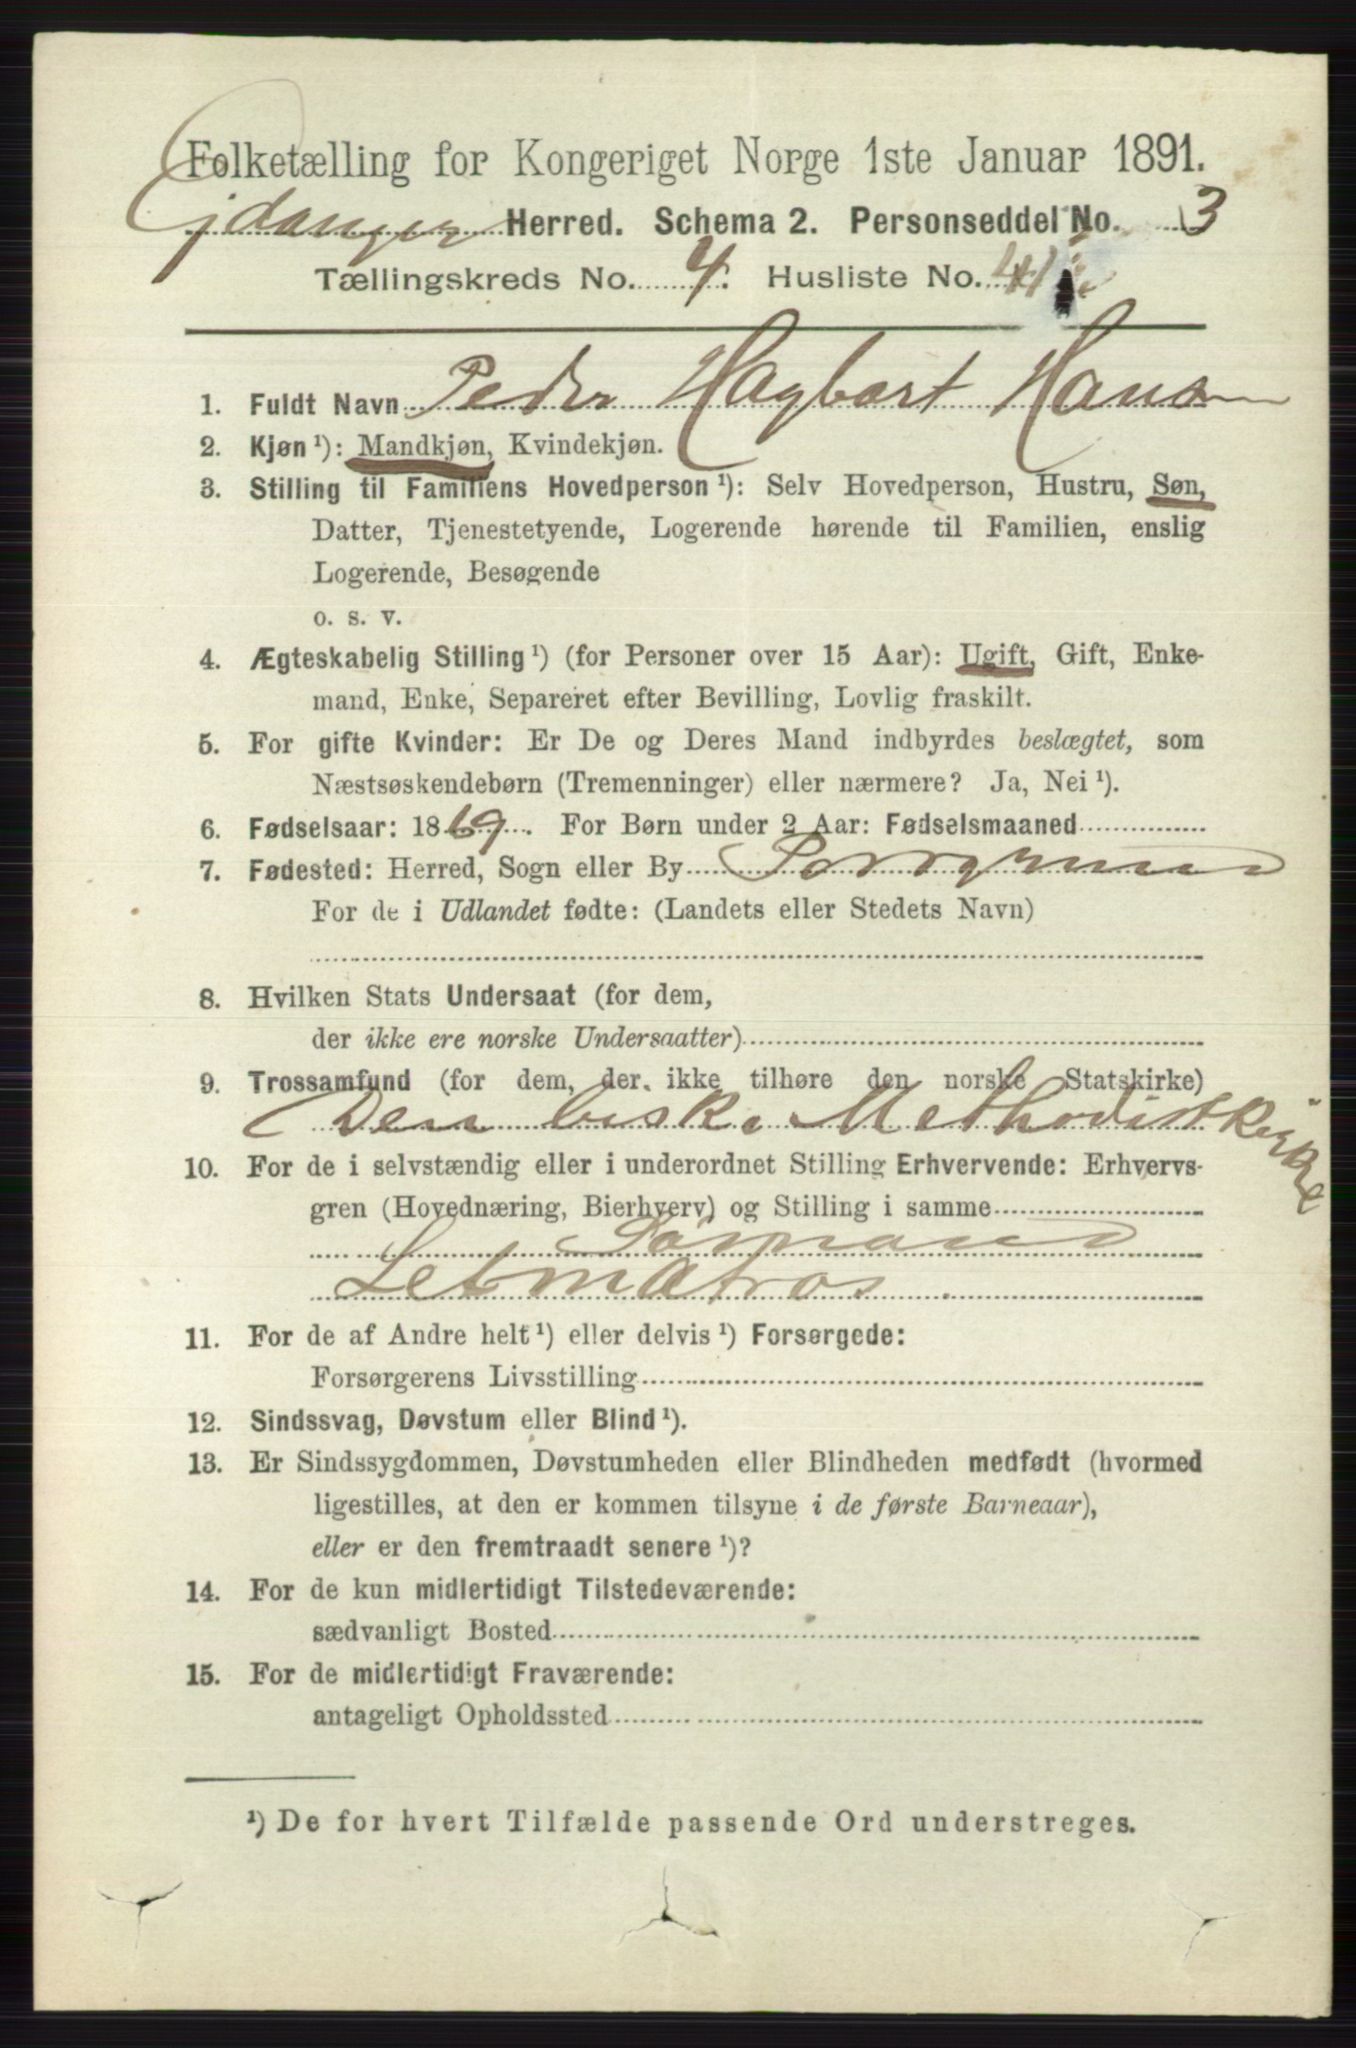 Folketælling for Kongeriget Norge 1ste Januar 1891.
Ejdanger Herred. Schema 2. Personseddel No. 3
Tællingskreds No. 4. Husliste No. 41
1. Fuldt Navn Peder Hagbart Hansen
2. Kjøn ¹): Mandkjøn, Kvindekjøn.
3. Stilling til Familiens Hovedperson ¹): Selv Hovedperson, Hustru, Søn,
Datter, Tjenestetyende, Logerende hørende til Familien, enslig
Logerende, Besøgende
o. s. v.
4. Ægteskabelig Stilling ¹) (for Personer over 15 Aar): Ugift, Gift, Enke-
mand, Enke, Separeret efter Bevilling, Lovlig fraskilt.
5. For gifte Kvinder: Er De og Deres Mand indbyrdes beslægtet, som
Næstsøskendebørn (Tremenninger) eller nærmere? Ja, Nei ¹).
6. Fødselsaar: 1869. For Børn under 2 Aar: Fødselsmaaned
7. Fødested: Herred, Sogn eller By Porsgrund
For de i Udlandet fødte: (Landets eller Stedets Navn)
8. Hvilken Stats Undersaat (for dem,
der ikke ere norske Undersaatter)
9. Trossamfund (for dem, der ikke tilhøre den norske Statskirke)
Den bisk. Methodistkirke
10. For de i selvstændig eller i underordnet Stilling Erhvervende: Erhvervs-
gren (Hovednæring, Bierhverv) og Stilling i samme
Sømand
Letmatros
11. For de af Andre helt ¹) eller delvis ¹) Forsørgede:
Forsørgerens Livsstilling
12. Sindssvag, Døvstum eller Blind ¹).
13. Er Sindssygdommen, Døvstumheden eller Blindheden medfødt (hvormed
ligestilles, at den er kommen tilsyne i de første Barneaar),
eller er den fremtraadt senere ¹)?
14. For de kun midlertidigt Tilstedeværende:
sædvanligt Bosted
15. For de midlertidigt Fraværende:
antageligt Opholdssted
¹) De for hvert Tilfælde passende Ord understreges.